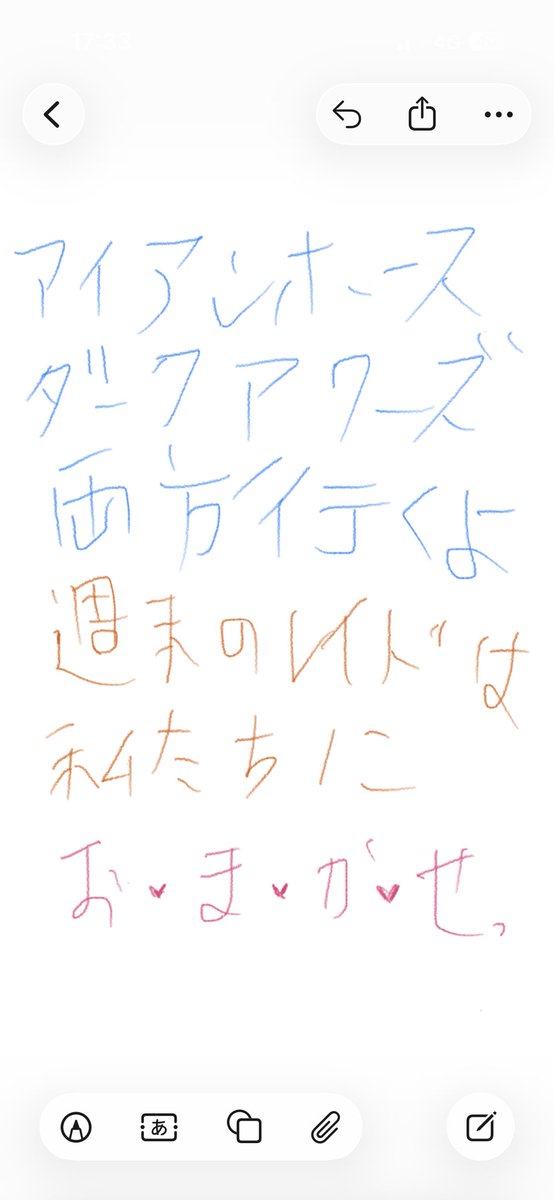 17:33
4G
アイアンホース
ダークアワーズ
両方行くよ
週末のレイドは
私たちに
お♥ま♥か♥せっ
あ